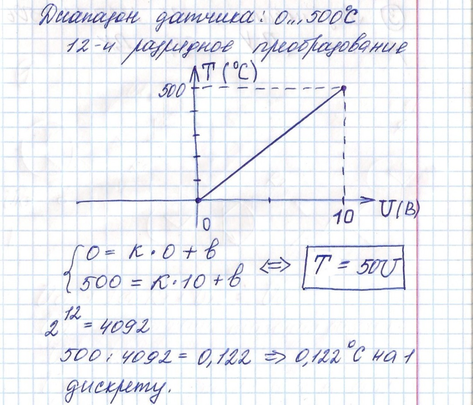 Диапазон датчика: 0...500°C
12-и разрядное преобразование
T (°C)
500
0
10
U(В)
0 = к · 0 + в
500 = к · 10 + в
<=> T = 50U
2¹² = 4092
500 : 4092 = 0,122 => 0,122°C на 1
дискрету.